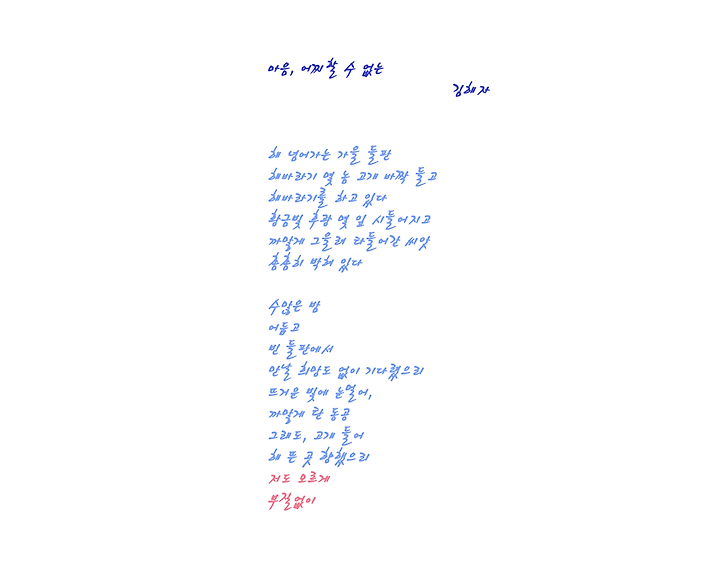 마음, 어찌할 수 없는
김해자
해 넘어가는 가을 들판
해바라기 몇 놈 고개 바짝 들고
해바라기를 하고 있다
황금빛 후광 몇 잎 시들어지고
까맣게 그을려 타들어간 씨앗
촘촘히 박혀 있다
수많은 밤
어둡고
빈 들판에서
만날 희망도 없이 기다렸으리
뜨거운 빛에 눈멀어,
까맣게 탄 동공
그래도, 고개 들어
해 뜬 곳 향했으리
저도 모르게
부질없이